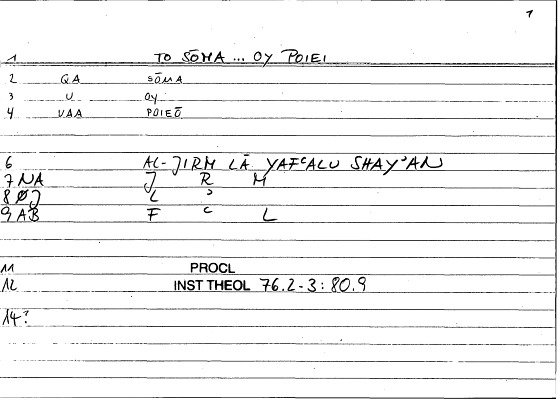 1
1 TO SŌMA ... OY POIEI
2 QA SŌMA
3 U OY
4 VAA POIEŌ
6 AL-JIRM LĀ YAFᶜALU SHAYʾAN
7 NA J R M
8 ØJ L ʾ
9 AB F ᶜ L
11 PROCL
12 INST THEOL 76.2-3:80.9
14?